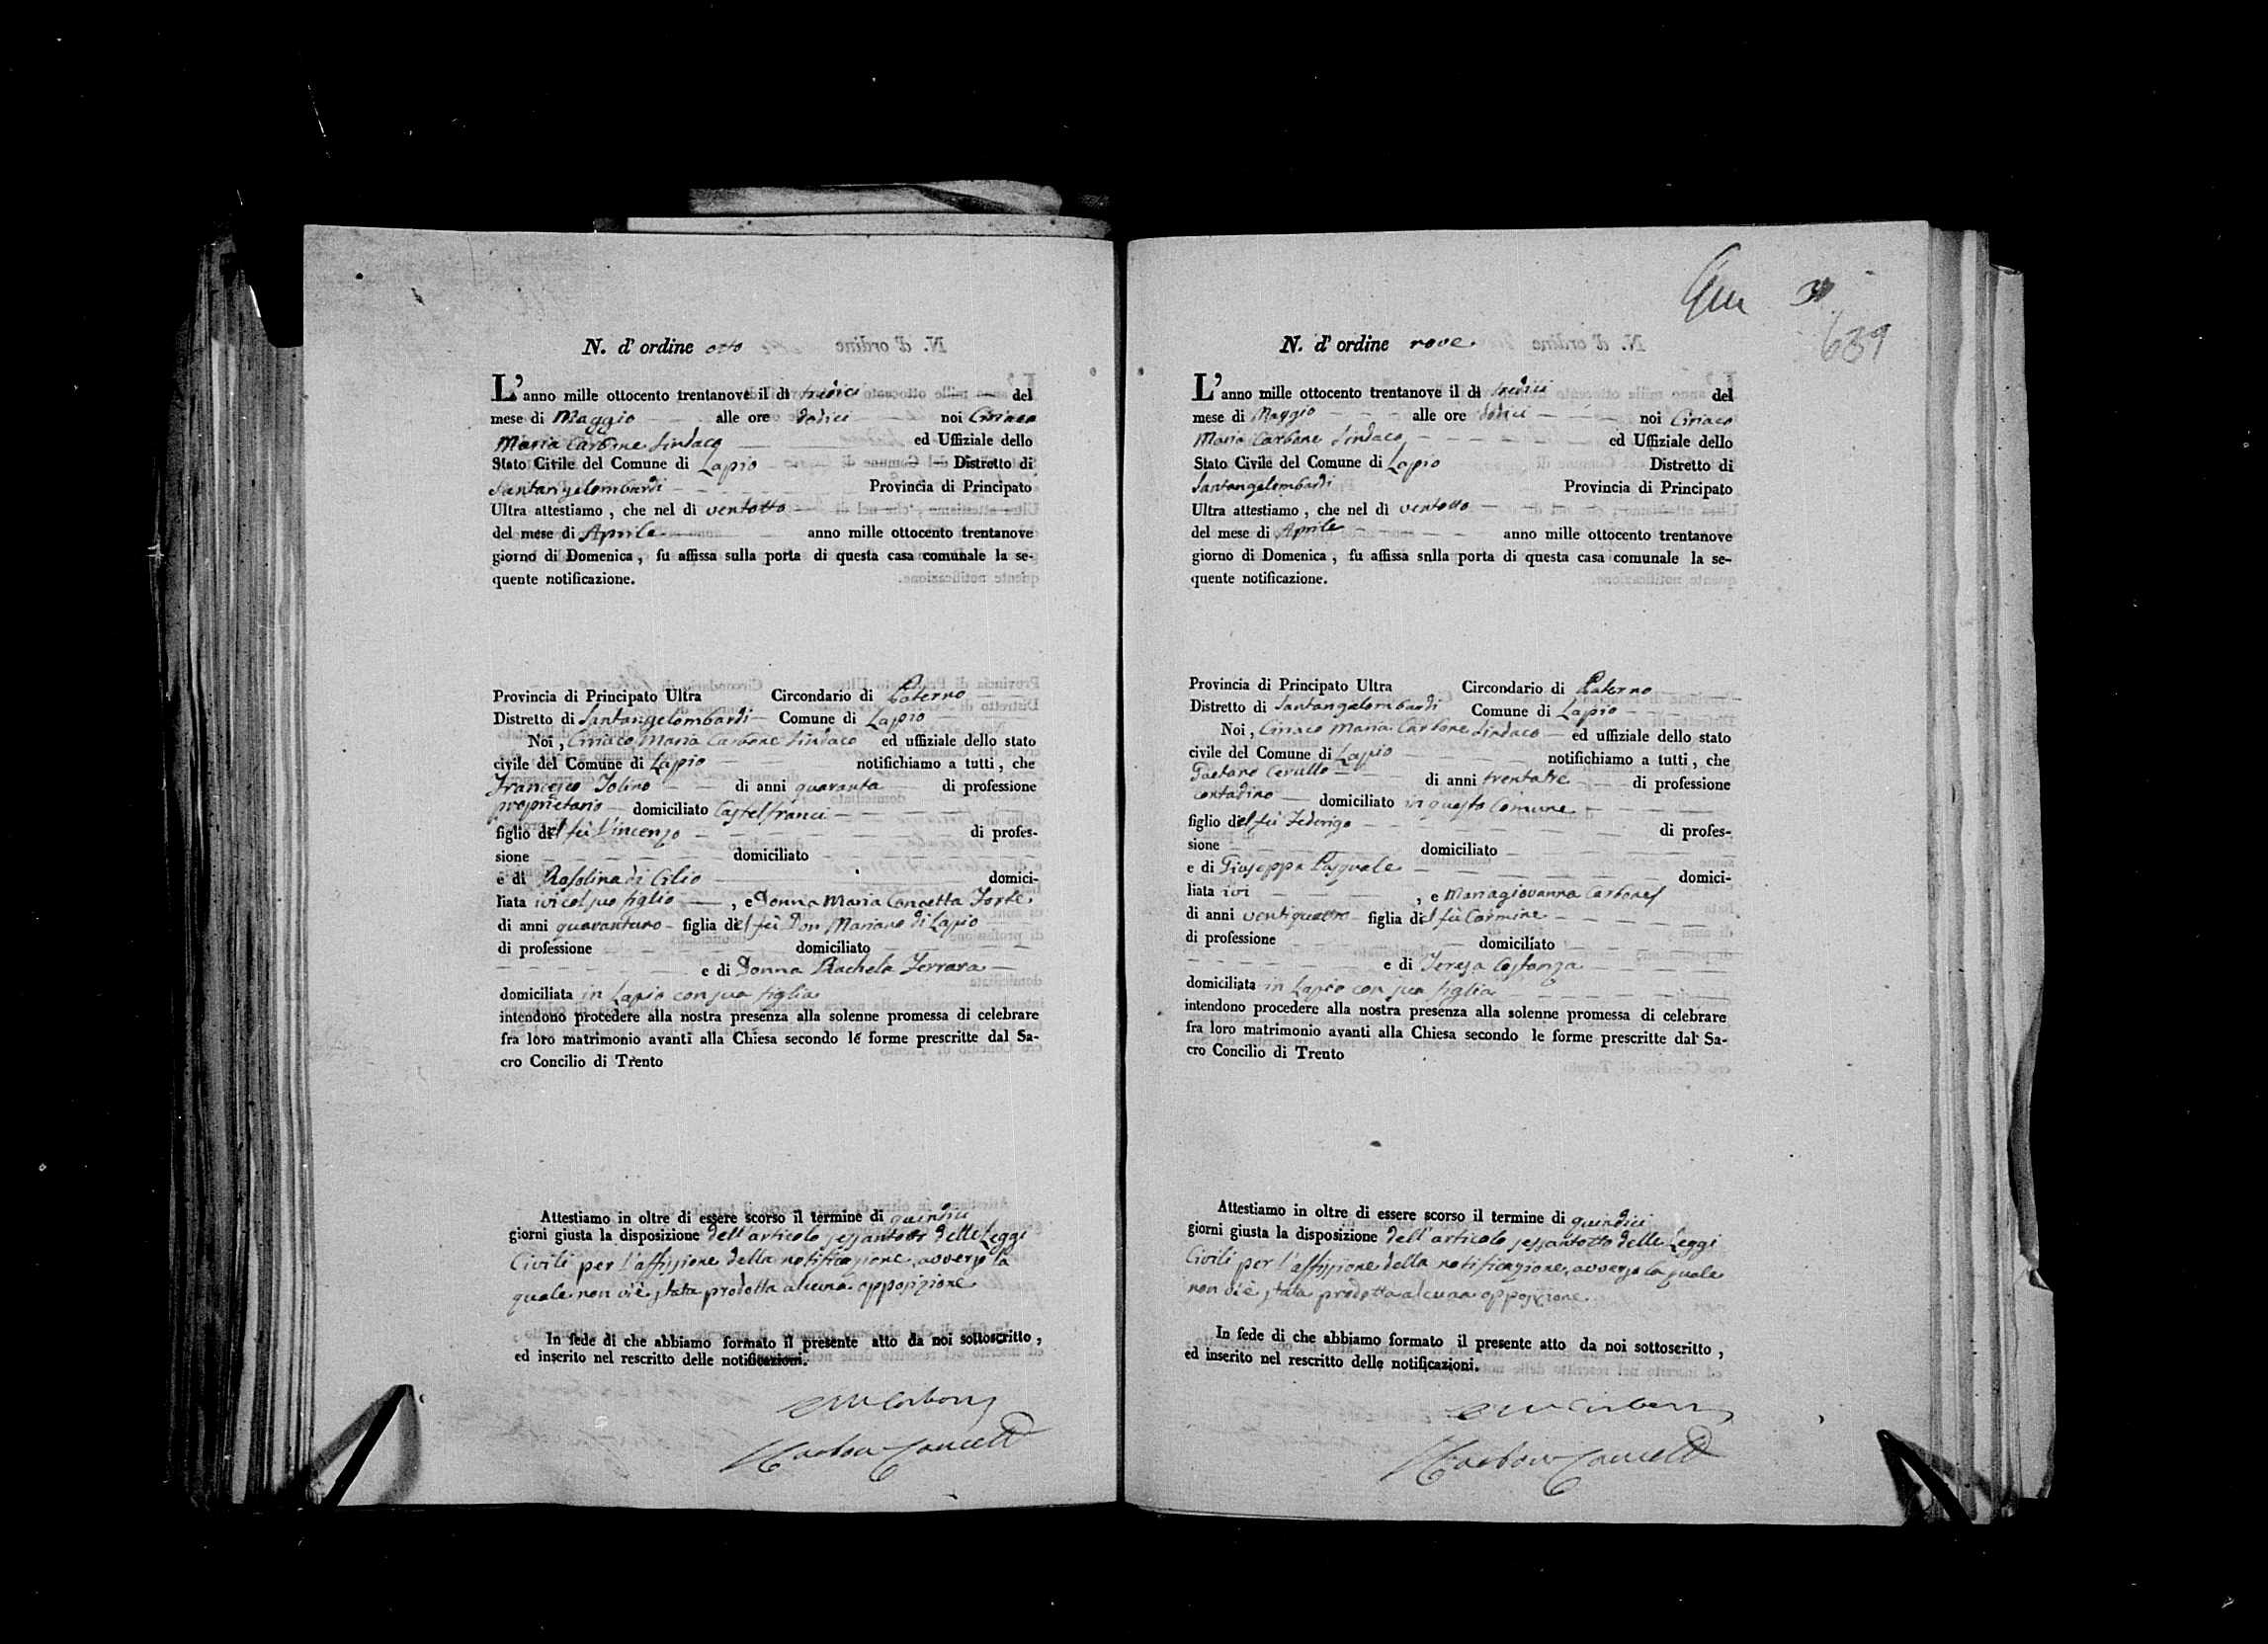 N. d' ordine otto
L'anno mille ottocento trentanove il dì tredici del
mese di Maggio alle ore dodici noi Ciriaco
Maria Carbone Sindaco ed Uffiziale dello
Stato Civile del Comune di Lapio Distretto di
Santangelombardi Provincia di Principato
Ultra attestiamo , che nel dì ventotto
del mese di Aprile anno mille ottocento trentanove
giorno di Domenica , fu affissa sulla porta di questa casa comunale la se-
quente notificazione.
Provincia di Principato Ultra Circondario di Paterno
Distretto di Santangelombardi Comune di Lapio
Noi , Ciriaco Maria Carbone Sindaco ed uffiziale dello stato
civile del Comune di Lapio notifichiamo a tutti , che
Francesco Iolino di anni quaranta di professione
proprietario domiciliato Castelfranci
figlio del fù Vincenzo di profes-
sione domiciliato
e di Rosolina di Cilio domici-
liata ivi col suo figlio , e Donna Maria Concetta Forte
di anni quarantuno figlia del fù Don Mariano di Lapio
di professione domiciliato
e di Donna Rachela Ferrara
domiciliata in Lapio con sua figlia
intendono procedere alla nostra presenza alla solenne promessa di celebrare
fra loro matrimonio avanti alla Chiesa secondo le forme prescritte dal Sa-
cro Concilio di Trento
Attestiamo in oltre di essere scorso il termine di quindici
giorni giusta la disposizione dell'articolo sessantotto delle Leggi
Civili per l'affissione della notificazione, avverso la
quale non vi è stata prodotta alcuna opposizione
In fede di che abbiamo formato il presente atto da noi sottoscritto ,
ed inserito nel rescritto delle notificazioni.
C M Carbone
Carbone Cancell
639
N. d' ordine nove
L'anno mille ottocento trentanove il dì tredici del
mese di Maggio alle ore dodici noi Ciriaco
Maria Carbone Sindaco ed Uffiziale dello
Stato Civile del Comune di Lapio Distretto di
Santangelombardi Provincia di Principato
Ultra attestiamo , che nel dì ventotto
del mese di Aprile anno mille ottocento trentanove
giorno di Domenica , fu affissa snlla porta di questa casa comunale la se-
quente notificazione.
Provincia di Principato Ultra Circondario di Paterno
Distretto di Santangelombardi Comune di Lapio
Noi , Ciriaco Maria Carbone Sindaco ed uffiziale dello stato
civile del Comune di Lapio notifichiamo a tutti , che
Gaetano Cerullo di anni trentatre di professione
contadino domiciliato in questo Comune
figlio del fù Federigo di profes-
sione domiciliato
e di Giuseppa Pasquale domici-
liata ivi , e Mariagiovanna Carbone
di anni ventiquattro figlia del fù Carmine
di professione domiciliato
e di Teresa Costanza
domiciliata in Lapio con sua figlia
intendono procedere alla nostra presenza alla solenne promessa di celebrare
fra loro matrimonio avanti alla Chiesa secondo le forme prescritte dal Sa-
cro Concilio di Trento
Attestiamo in oltre di essere scorso il termine di quindici
giorni giusta la disposizione dell'articolo sessantotto delle Leggi
Civili per l'affissione della notificazione, avverso la quale
non vi è stata prodotta alcuna opposizione
In fede di che abbiamo formato il presente atto da noi sottoscritto ,
ed inserito nel rescritto delle notificazioni.
C M Carbone
Carbone Cancell